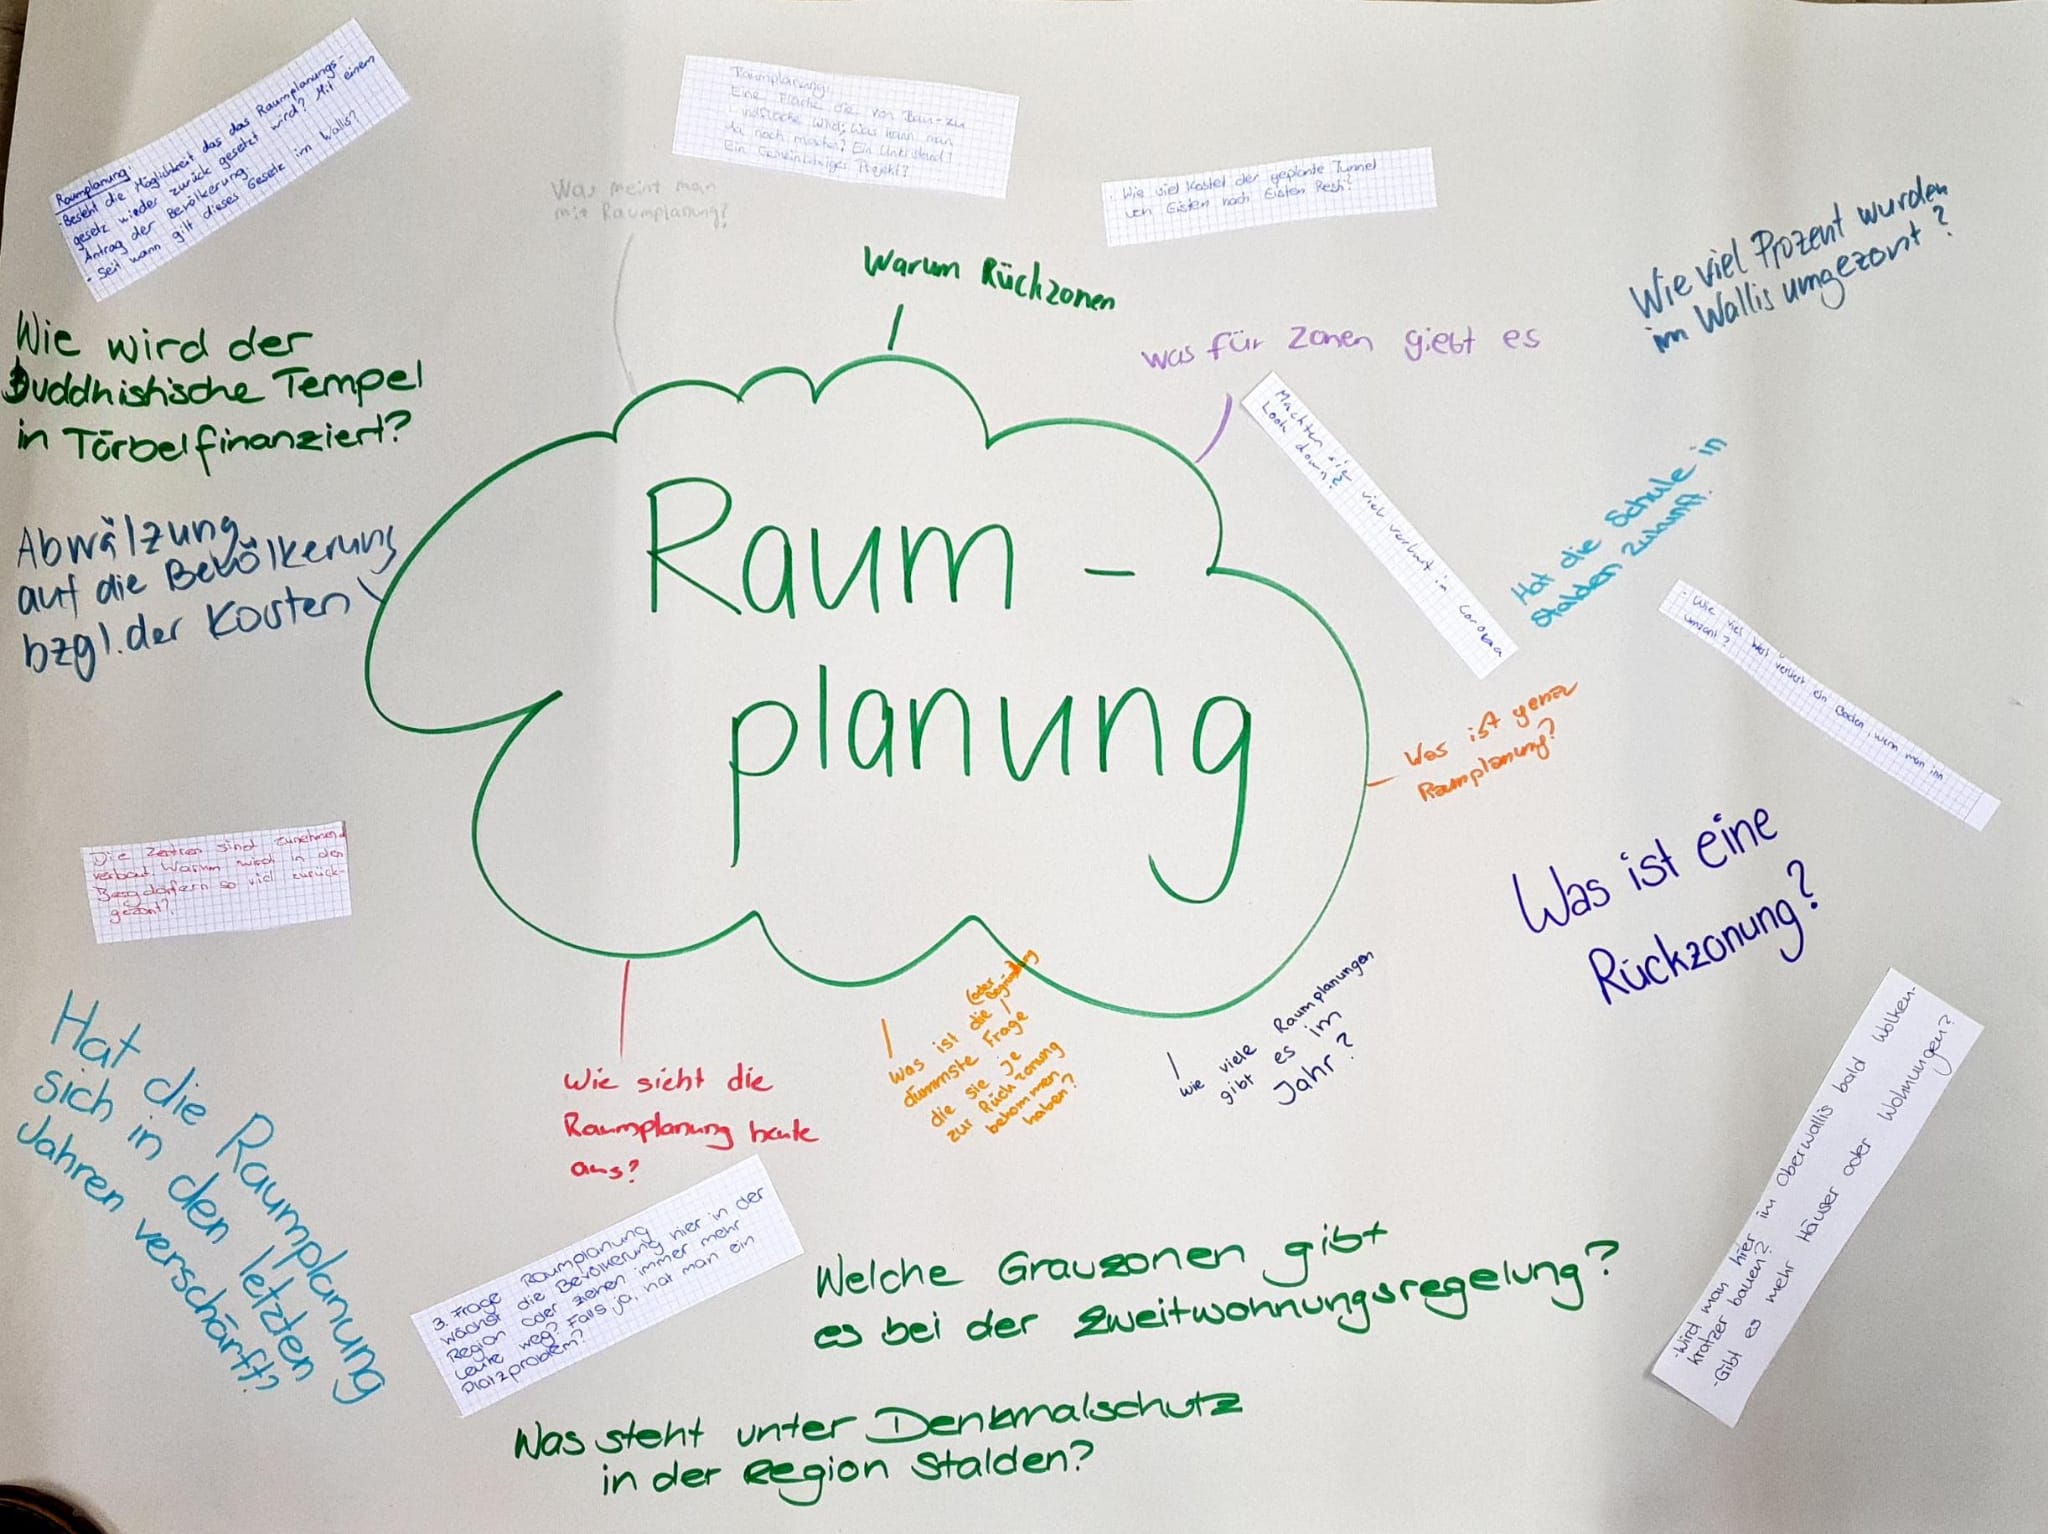 Raumplanung:
- Besteht die Möglichkeit das das Raumplanungs-
gesetz wieder zurück gesetzt wird? Mit einem
Antrag der Bevölkerung
- Seit wann gilt dieses Gesetz im Walls?
Raumplanung:
Eine Fläche die von Bau- zu
wird; Was kann man
da noch machen? Ein Unterstand?
Ein Gemeinnütziges Projekt?
Was meint man
mit Raumplanung?
- Wie viel kostet der geplante Tunnel
von Eisten nach Eisten Resti?
Warum Rückzonen
was für Zonen giebt es
Wie viel Prozent wurden
im Wallis umgezont?
Wie wird der
Buddhistische Tempel
in Törbel finanziert?
Machten sie viel verlust im Corona
Look down?
Hat die Schule in
Stalden Zukunft.
Abwälzung
auf die Bevölkerung
bzgl. der Kosten
Raum -
planung
- Wie viel Wert verliert ein Boden, wenn man ihn
umzont?
Was ist genau
Raumplanung?
Was ist eine
Rückzonung?
Die Zentren sind zunehmend
verbaut Warum wird in den
Bergdörfern so viel zurück-
gezont?
Hat die Raumplanung
sich in den letzten
Jahren verschärft?
Wie sieht die
Raumplanung heute
aus?
Was ist die (oder Begründung)
dümmste Frage
die sie je
zur Rückzonung
bekommen
haben?
wie viele Raumplanungen
gibt es im
Jahr?
- Wird man hier im Oberwallis bald Wolken-
kratzer bauen?
- Gibt es mehr Häuser oder Wohnungen?
3. Frage Raumplanung
wächst die Bevölkerung hier in der
Region oder ziehen immer mehr
Leute weg? Falls ja, hat man ein
Platzproblem?
Welche Grauzonen gibt
es bei der Zweitwohnungsregelung?
Was steht unter Denkmalschutz
in der Region Stalden?